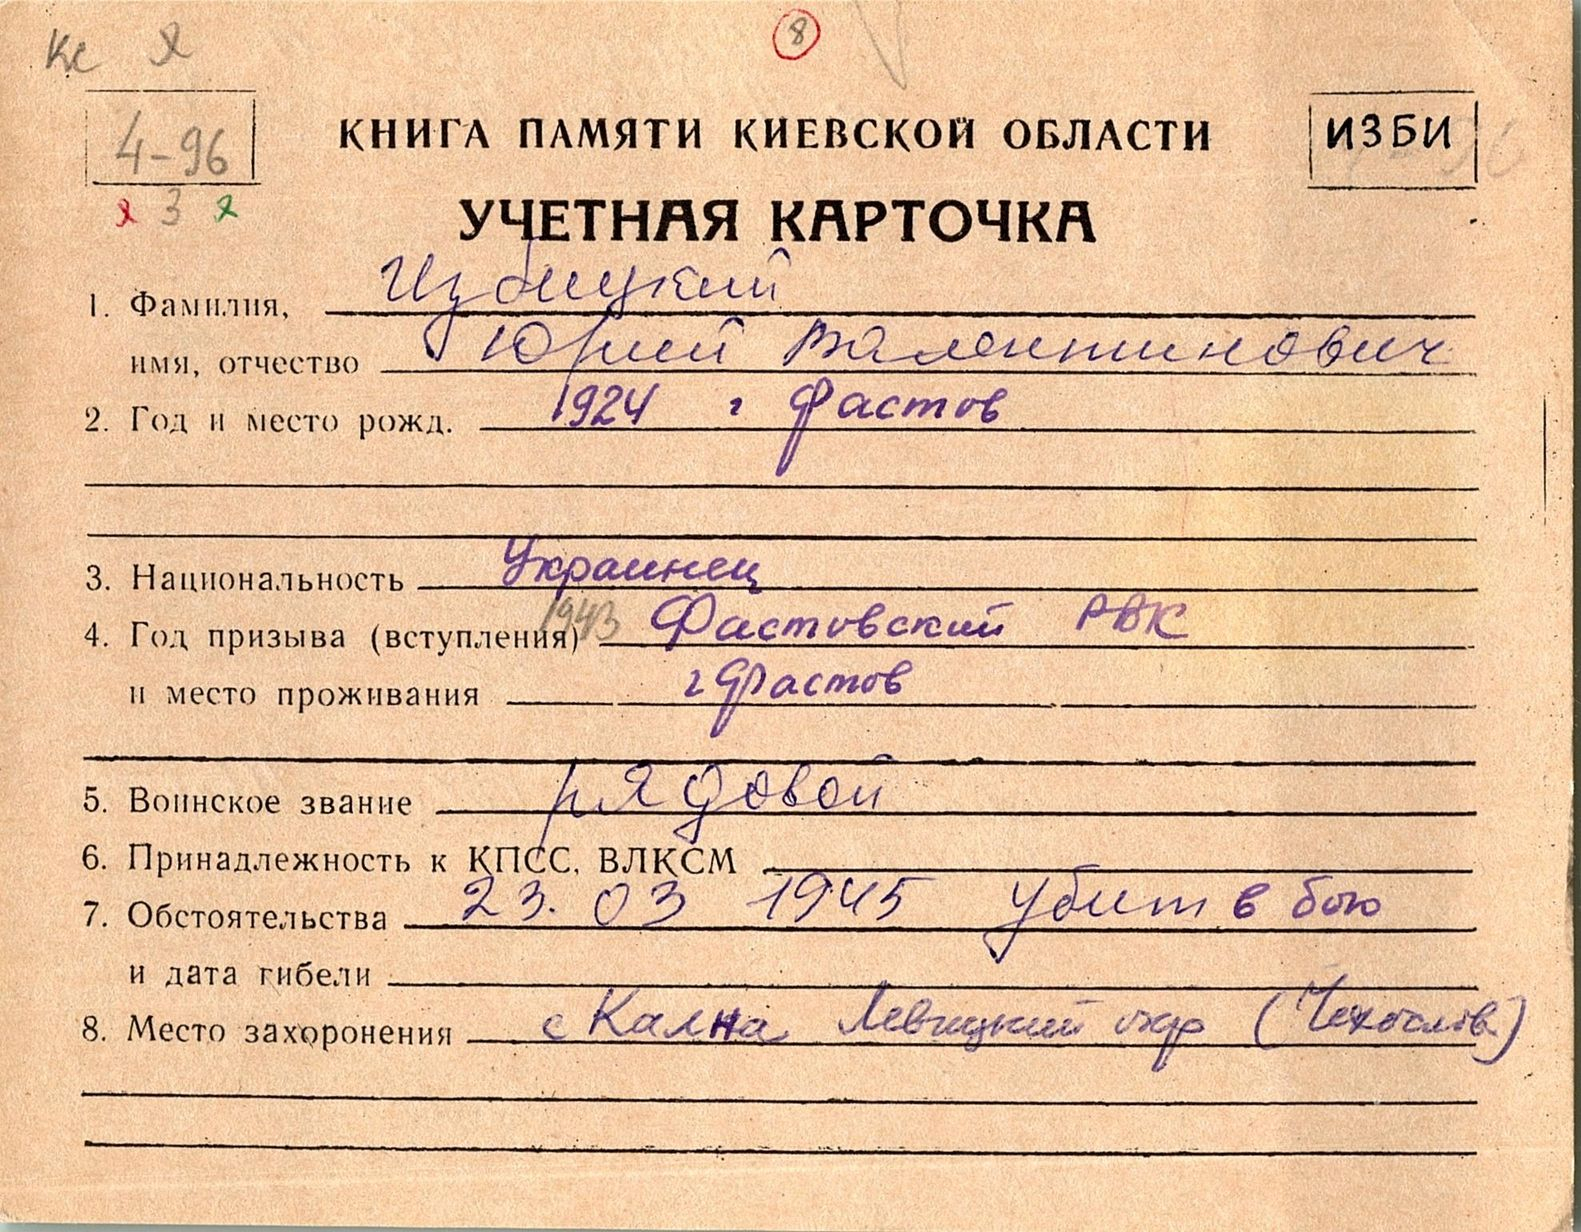 Кс Я
8
4-96
3
КНИГА ПАМЯТИ КИЕВСКОЙ ОБЛАСТИ
ИЗБИ
УЧЕТНАЯ КАРТОЧКА
1. Фамилия, Избицкий
имя, отчество Юрий Валентинович
2. Год и место рожд. 1924 г Фастов
3. Национальность Украинец
4. Год призыва (вступления) 1943 Фастовский РВК
и место проживания г Фастов
5. Воинское звание рядовой
6. Принадлежность к КПСС, ВЛКСМ
7. Обстоятельства 23. 03 1945 убит в бою
и дата гибели
8. Место захоронения с Кална Левицкий окр (Чехослов)